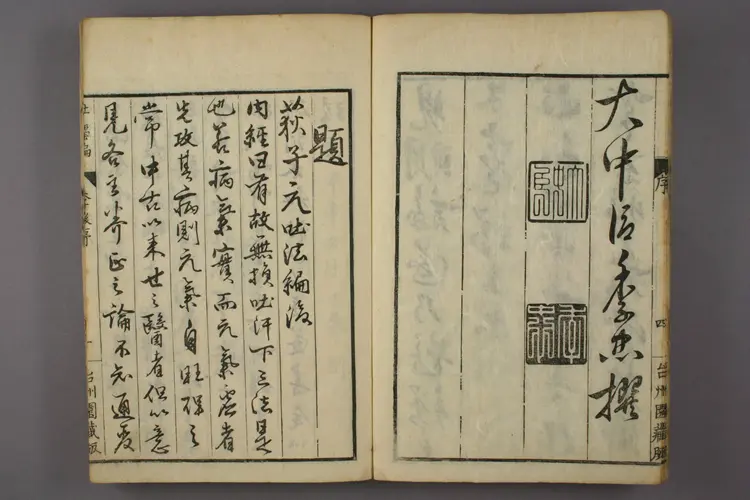 大中臣季忠撰
序
四
台州園藏版
題
荻子元吐法編後
内經曰有故無損吐汗下三法是
也若病氣實而元氣虛者
先攻其病則元氣自旺
常中古以來世之醫者但以意
見各立 之論不知通変
台州園藏版